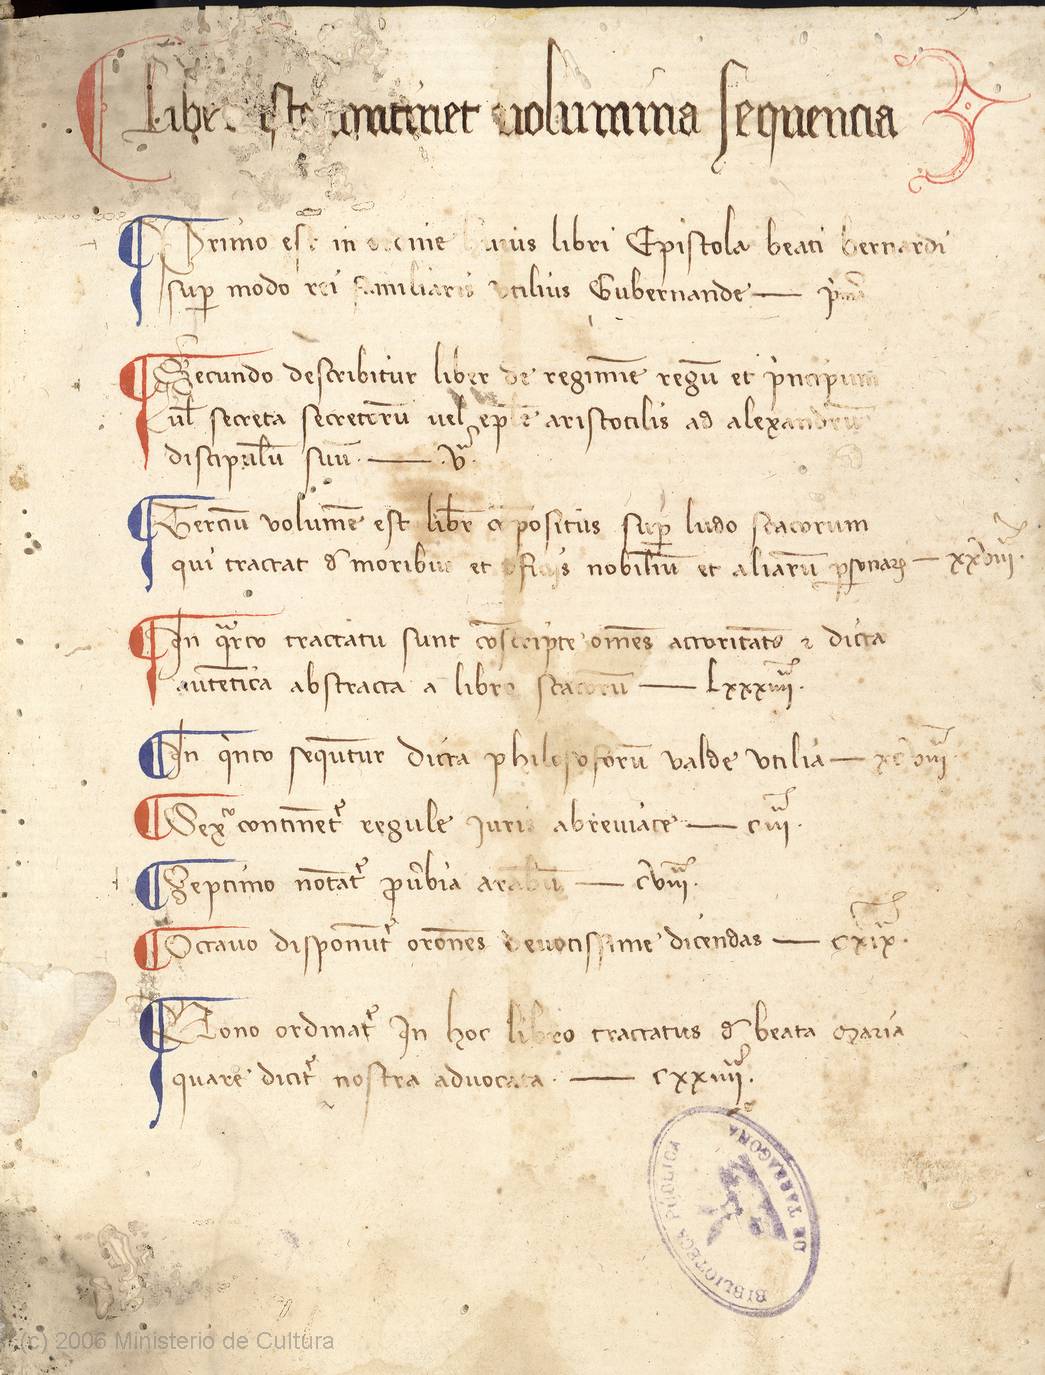 Liber iste continet volumina sequencia
Primo est in ordine huius libri Epistola beati bernardi
sup modo rei familiaris utilius Gubernande — pͥmͣ
Secundo describitur liber de regimīe regū et pͥncipum
uel secreta secretorū uel epłe aristotilis ad alexandrum
discipulū suū. — .vͣ.
Terciū volumē est libͬ cōpositus sup ludo scacorum
qui tractat đ moribus et oficiis nobiliū et aliarū psonaꝝ — xxviiiͣ.
In qͣrto tractatu sunt cōscripte om̄es actoritates ⁊ dicta
autētica abstracta a libro scacorū — Lxxxiiiiͣ.
In qͥnto sequūtur dicta philosoforū valde utilia — xcviiiͣ
Sexͦ continet᷑ regule Juris abreviate — ciiiͣ.
Septimo notat᷑ pv̄bia arabū — cviiiiͣ.
Octavo disponūt᷑ orōnes devotissime dicendas — cxixͣ.
Nono ordinat᷑ In hoc libro tractatus đ beata maria
quare dicit᷑ nostra advocata. — cxxiiiiͣ.
BIBLIOTECA PUBLICA
DE TARRAGONA
(c) 2006 Ministerio de Cultura